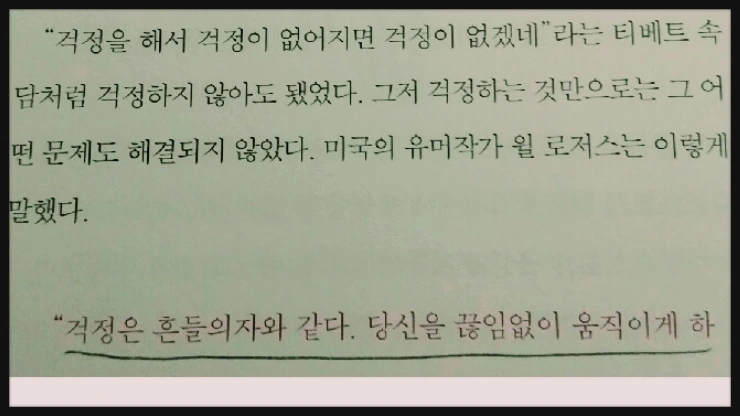 “걱정을 해서 걱정이 없어지면 걱정이 없겠네”라는 티베트 속
담처럼 걱정하지 않아도 됐었다. 그저 걱정하는 것만으로는 그 어
떤 문제도 해결되지 않았다. 미국의 유머작가 윌 로저스는 이렇게
말했다.
“걱정은 흔들의자와 같다. 당신을 끊임없이 움직이게 하